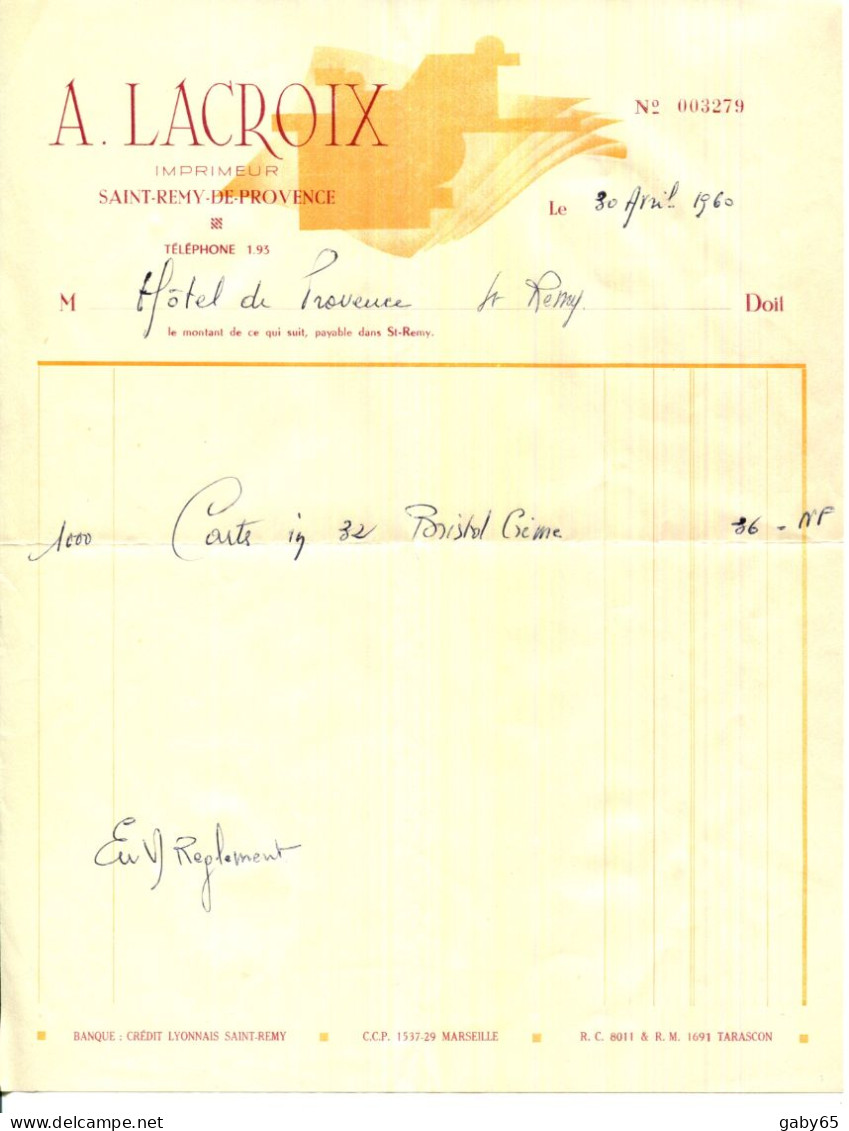 A. LACROIX
IMPRIMEUR
SAINT-REMY-DE-PROVENCE
TÉLÉPHONE 1.93
Nº 003279
Le 30 Avril 1960
M Hôtel de Provence St Remy Doit
le montant de ce qui suit, payable dans St-Remy.
1000 Carte in 32 Bristol Crème 36 - NF
Reglement
BANQUE : CRÉDIT LYONNAIS SAINT-REMY C.C.P. 1537-29 MARSEILLE R. C. 8011 & R. M. 1691 TARASCON
delcampe.net
gaby65